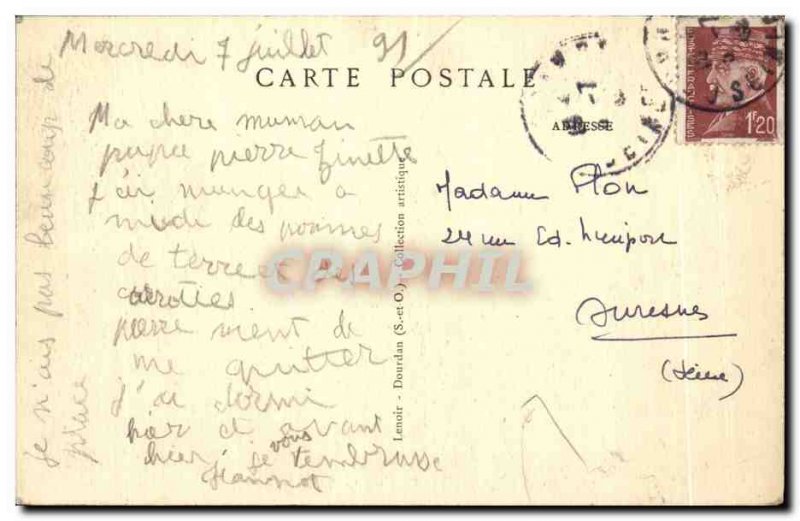 Mercredi 7 juillet 91/
CARTE POSTALE
ADRESSE
Ma chere muman
papa pierre ginette
j'ai munger a
midi des pommes
de terre et des
carottes
pierre vient de
me quitter
j'ai dormi
hier et avant
hier je vous
t'embrasse
Jeannot
je n'ais pas beaucoup de
place
Madame Plon
24 rue Ed.
Suresnes
(Seine)
1F20
Lenoir - Dourdan (S.-et O.) - Collection artistique
CPAPHIL